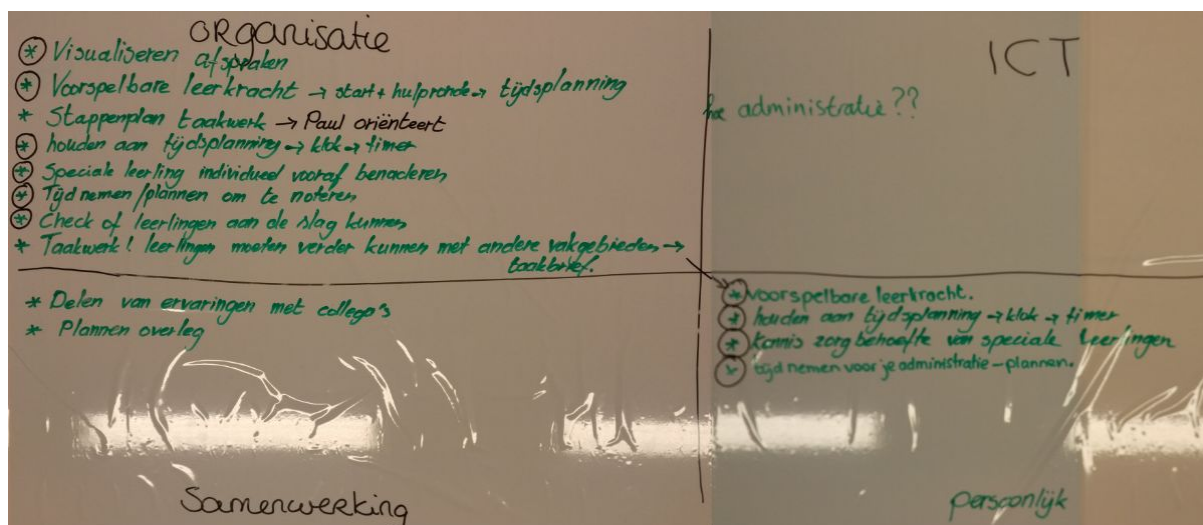 organisatie
* Visualiseren afspraken
* Voorspelbare leerkracht → start + hulpronde → tijdsplanning
* Stappenplan taakwerk → Paul oriënteert
* houden aan tijdsplanning → klok → timer
* Speciale leerling individueel vooraf benaderen
* Tijd nemen/plannen om te noteren
* Check of leerlingen aan de slag kunnen
* Taakwerk! leerlingen moeten verder kunnen met andere vakgebieden →
taakbrief.
ICT
hoe administratie??
* Delen van ervaringen met collega's
* Plannen overleg
Samenwerking
* voorspelbare leerkracht.
* houden aan tijdsplanning → klok → timer
* Kennis zorgbehoefte van speciale leerlingen
* tijd nemen voor je administratie – plannen.
persoonlijk